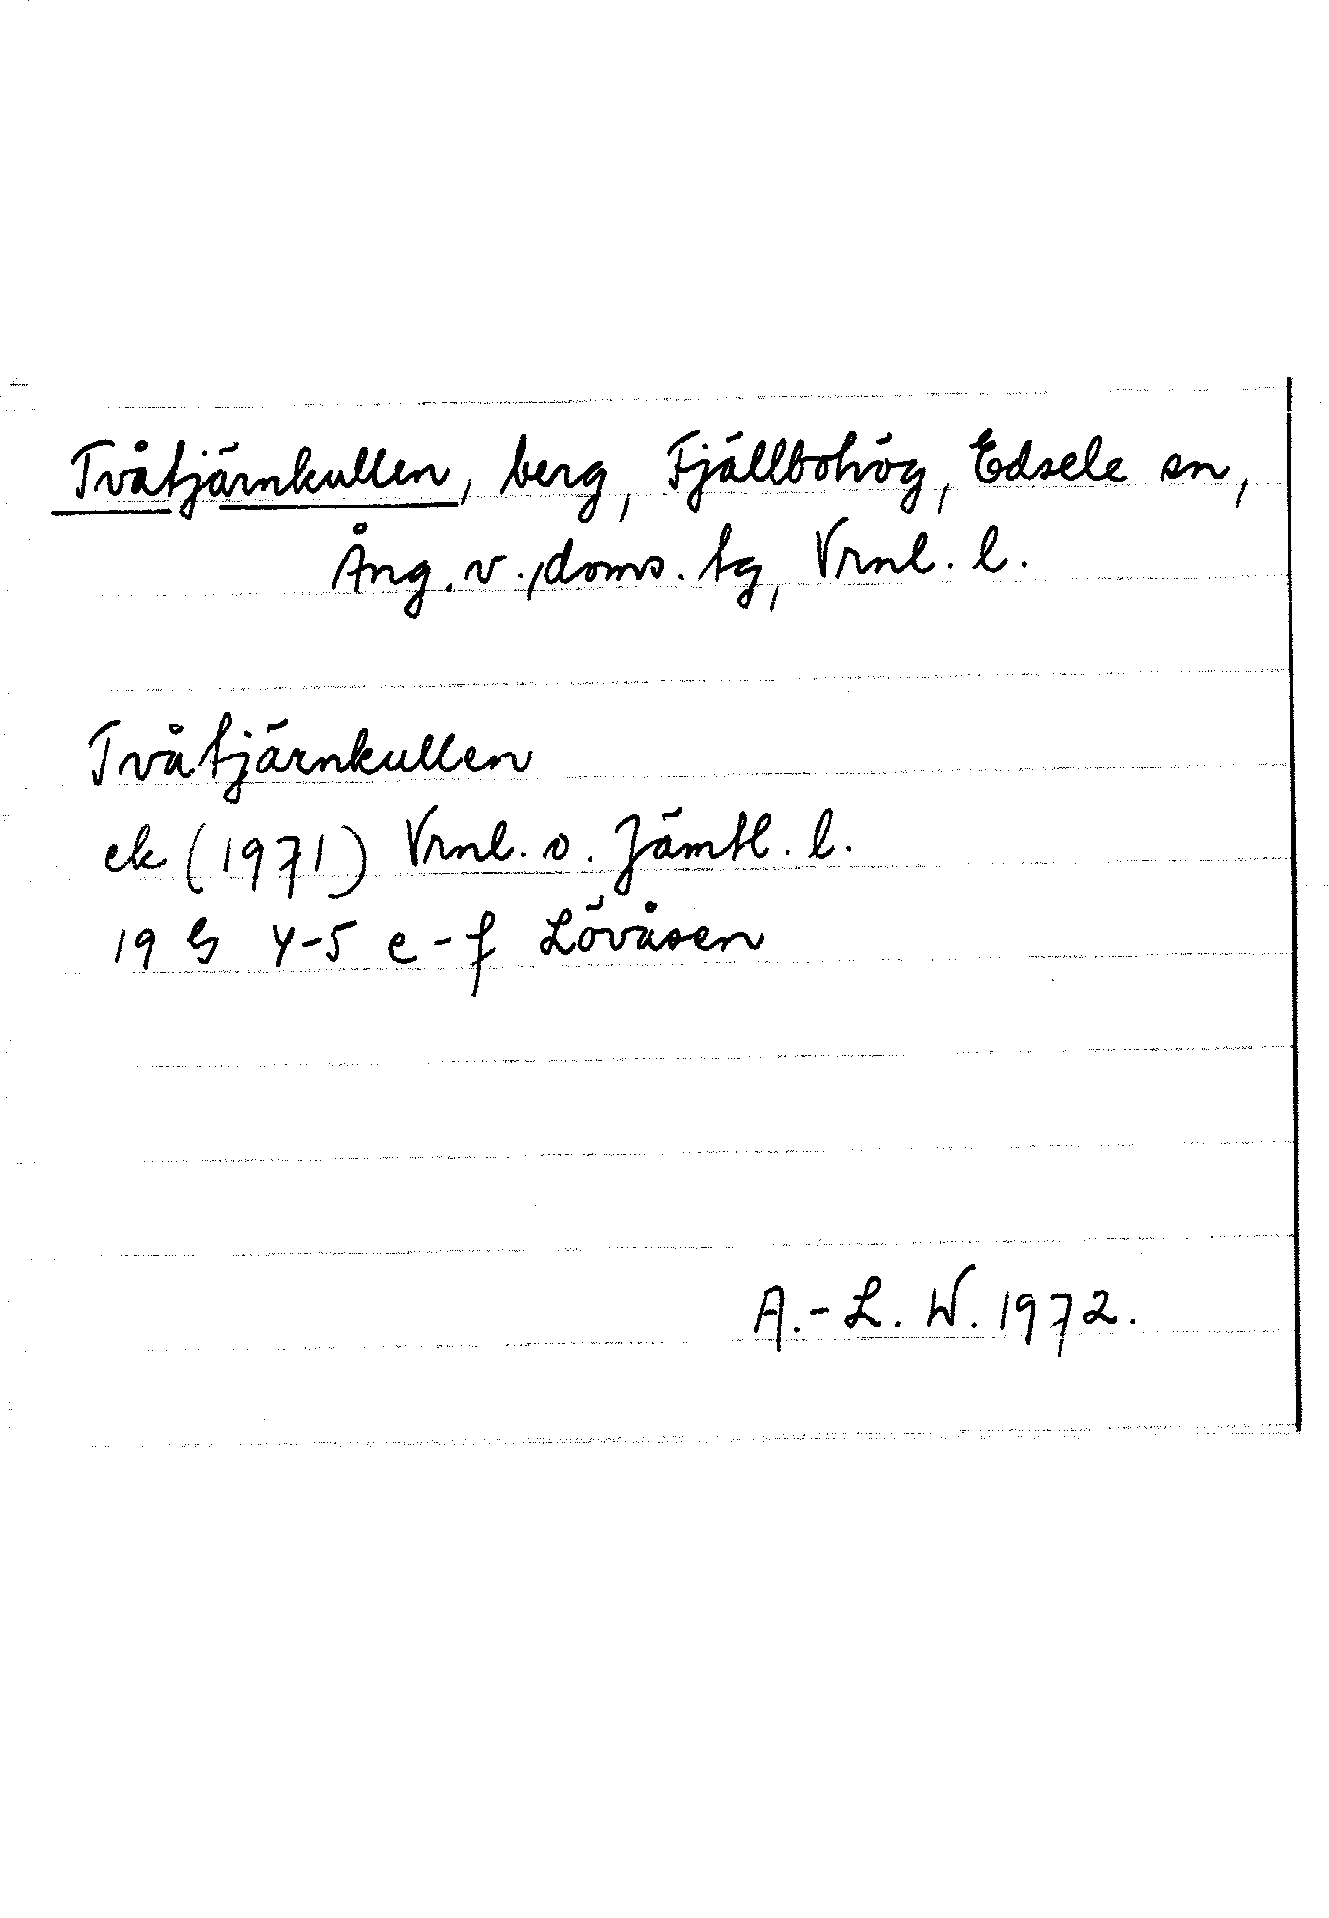 Tvåtjärnkullen, berg, Fjällbohög, Edsele sn,
Ång. v., doms. tg, Vrnl. l.
Tvåtjärnkullen
ek (1971) Vrnl. o. Jämtl. l.
19 G 4-5 e-f Lövåsen
A.-L. W. 1972.